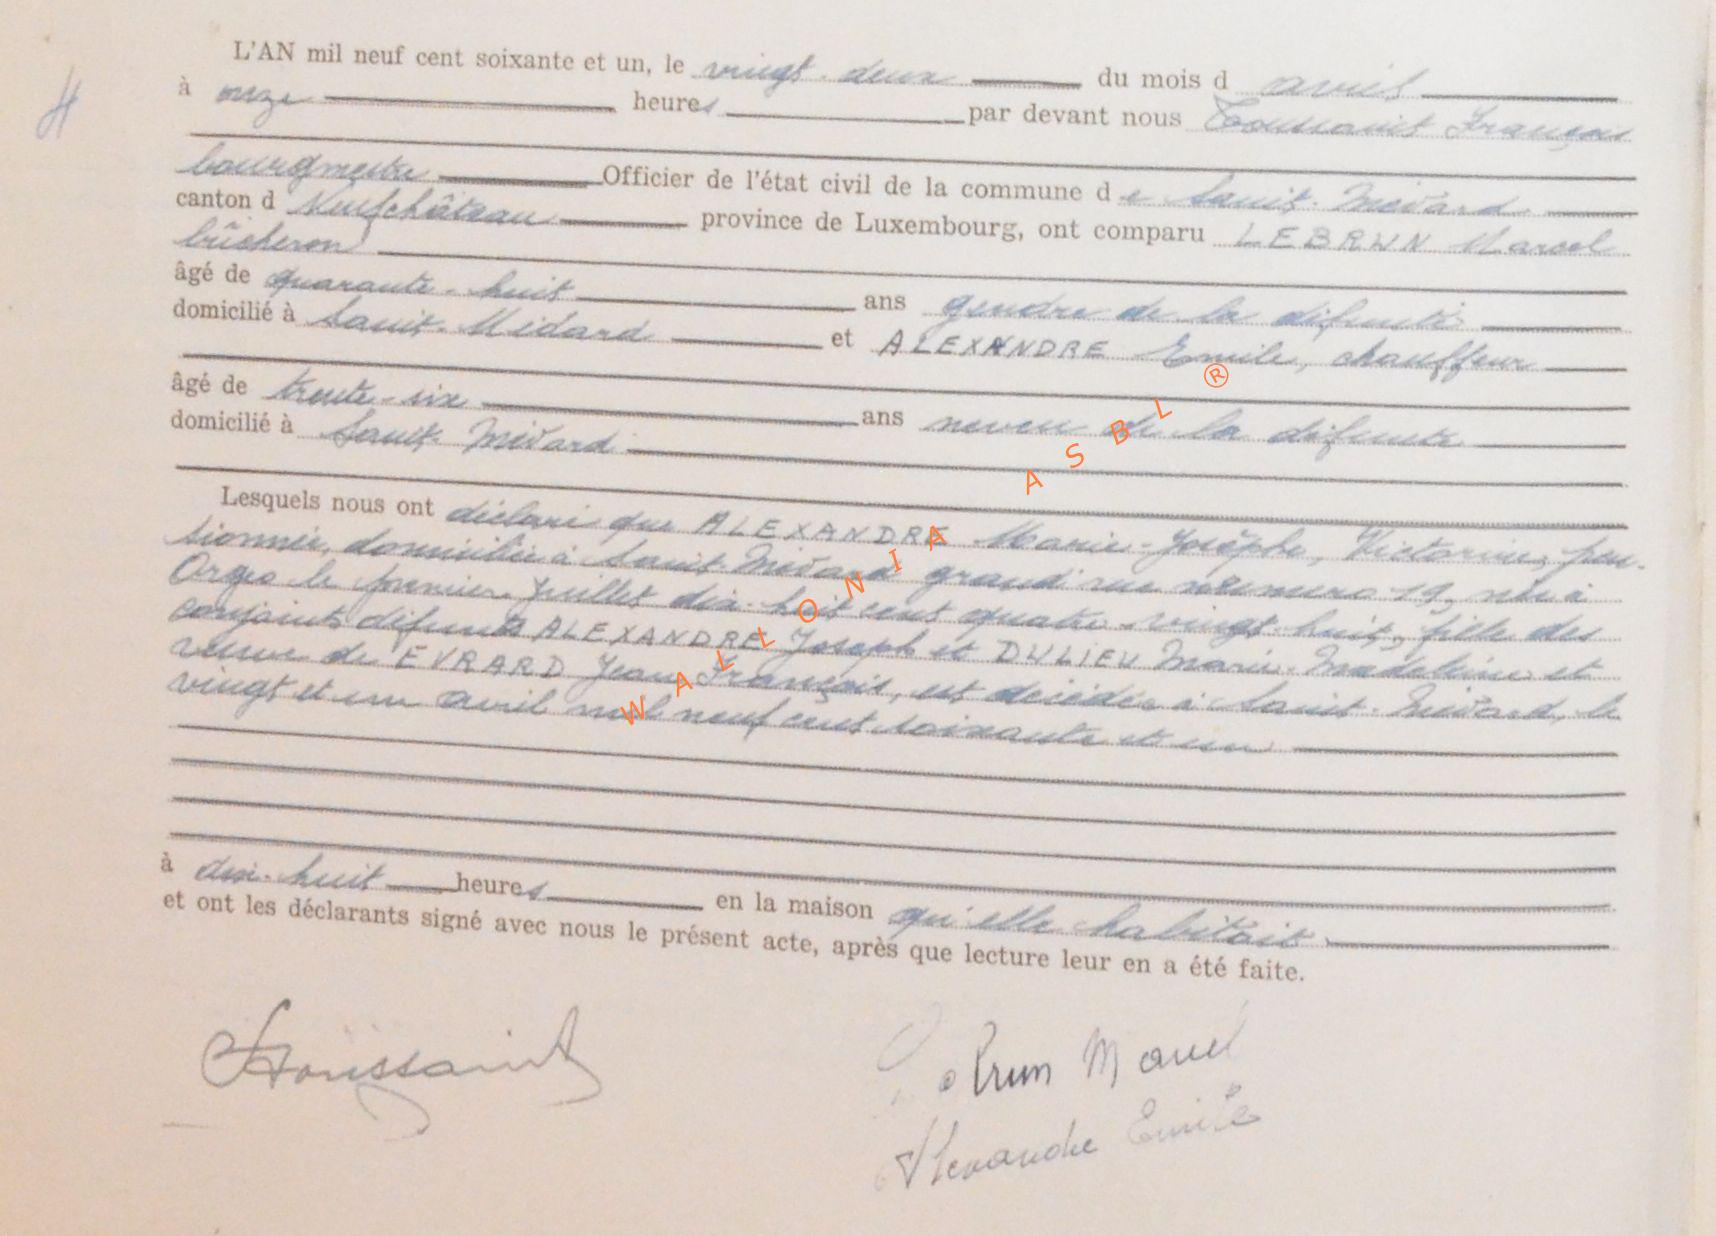 L'AN mil neuf cent soixante et un, le vingt-deux du mois d avril
à onze heures par devant nous Toussaint François
bourgmestre Officier de l'état civil de la commune de Saint-Médard
canton d Neufchâteau province de Luxembourg, ont comparu LEBRUN Marcel
bûcheron
âgé de quarante-huit ans gendre de la défunte
domicilié à Saint-Médard et ALEXANDRE Emile, chauffeur
âgé de trente-six ans neveu de la défunte
domicilié à Saint-Médard
Lesquels nous ont déclaré que ALEXANDRE Marie-Josèphe, Victorine, pen-
sionnée, domiciliée à Saint-Médard grand'rue numéro 19, née à
Orgeo le premier juillet dix-huit cent quatre-vingt-huit, fille des
conjoints défunts ALEXANDRE Joseph et DULIEU Marie-Madeleine et
veuve de EVRARD Jean-François, est décédée à Saint-Médard, le
vingt et un avril mil neuf cent soixante et un
à dix-huit heures en la maison qu'elle habitait
et ont les déclarants signé avec nous le présent acte, après que lecture leur en a été faite.
Toussaint
Lebrun Marcel
Alexandre Emile
WALLONIA ASBL ®